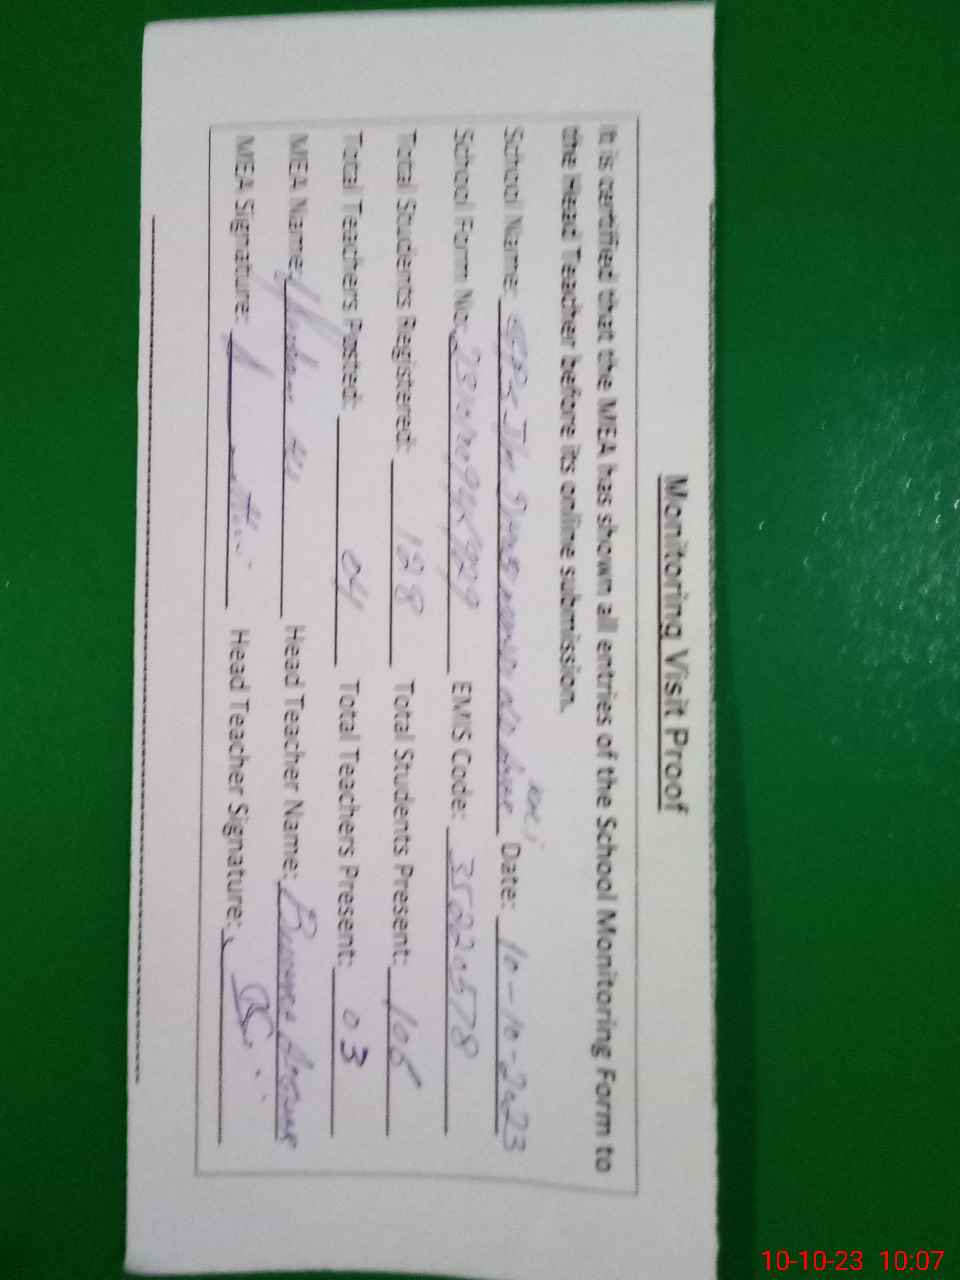 Monitoring Visit Proof
It is certified that the MEA has shown all entries of the School Monitoring Form to
the Head Teacher before its online submission.
School Name: Date: 10-10-2023
School Form No: EMIS Code: 35220578
Total Students Registered: 128 Total Students Present: 106
Total Teachers Posted: 04 Total Teachers Present: 03
MEA Name: Ali Head Teacher Name:
MEA Signature: Head Teacher Signature:
10-10-23 10:07